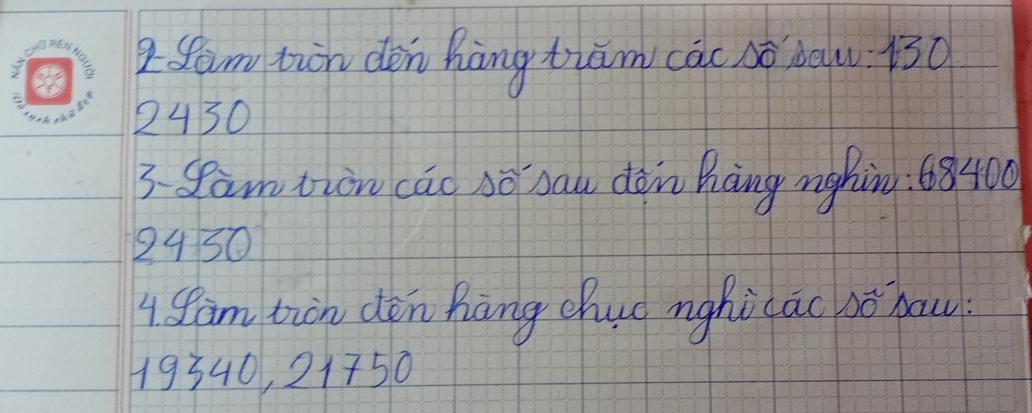 NẮN CHỮ RÈN NGƯỜI
2- Làm tròn đến hàng trăm các số sau: 130
2430
3- Làm tròn các số sau đến hàng nghìn: 68400
2430
4. Làm tròn đến hàng chục nghì các số sau:
19340, 21750